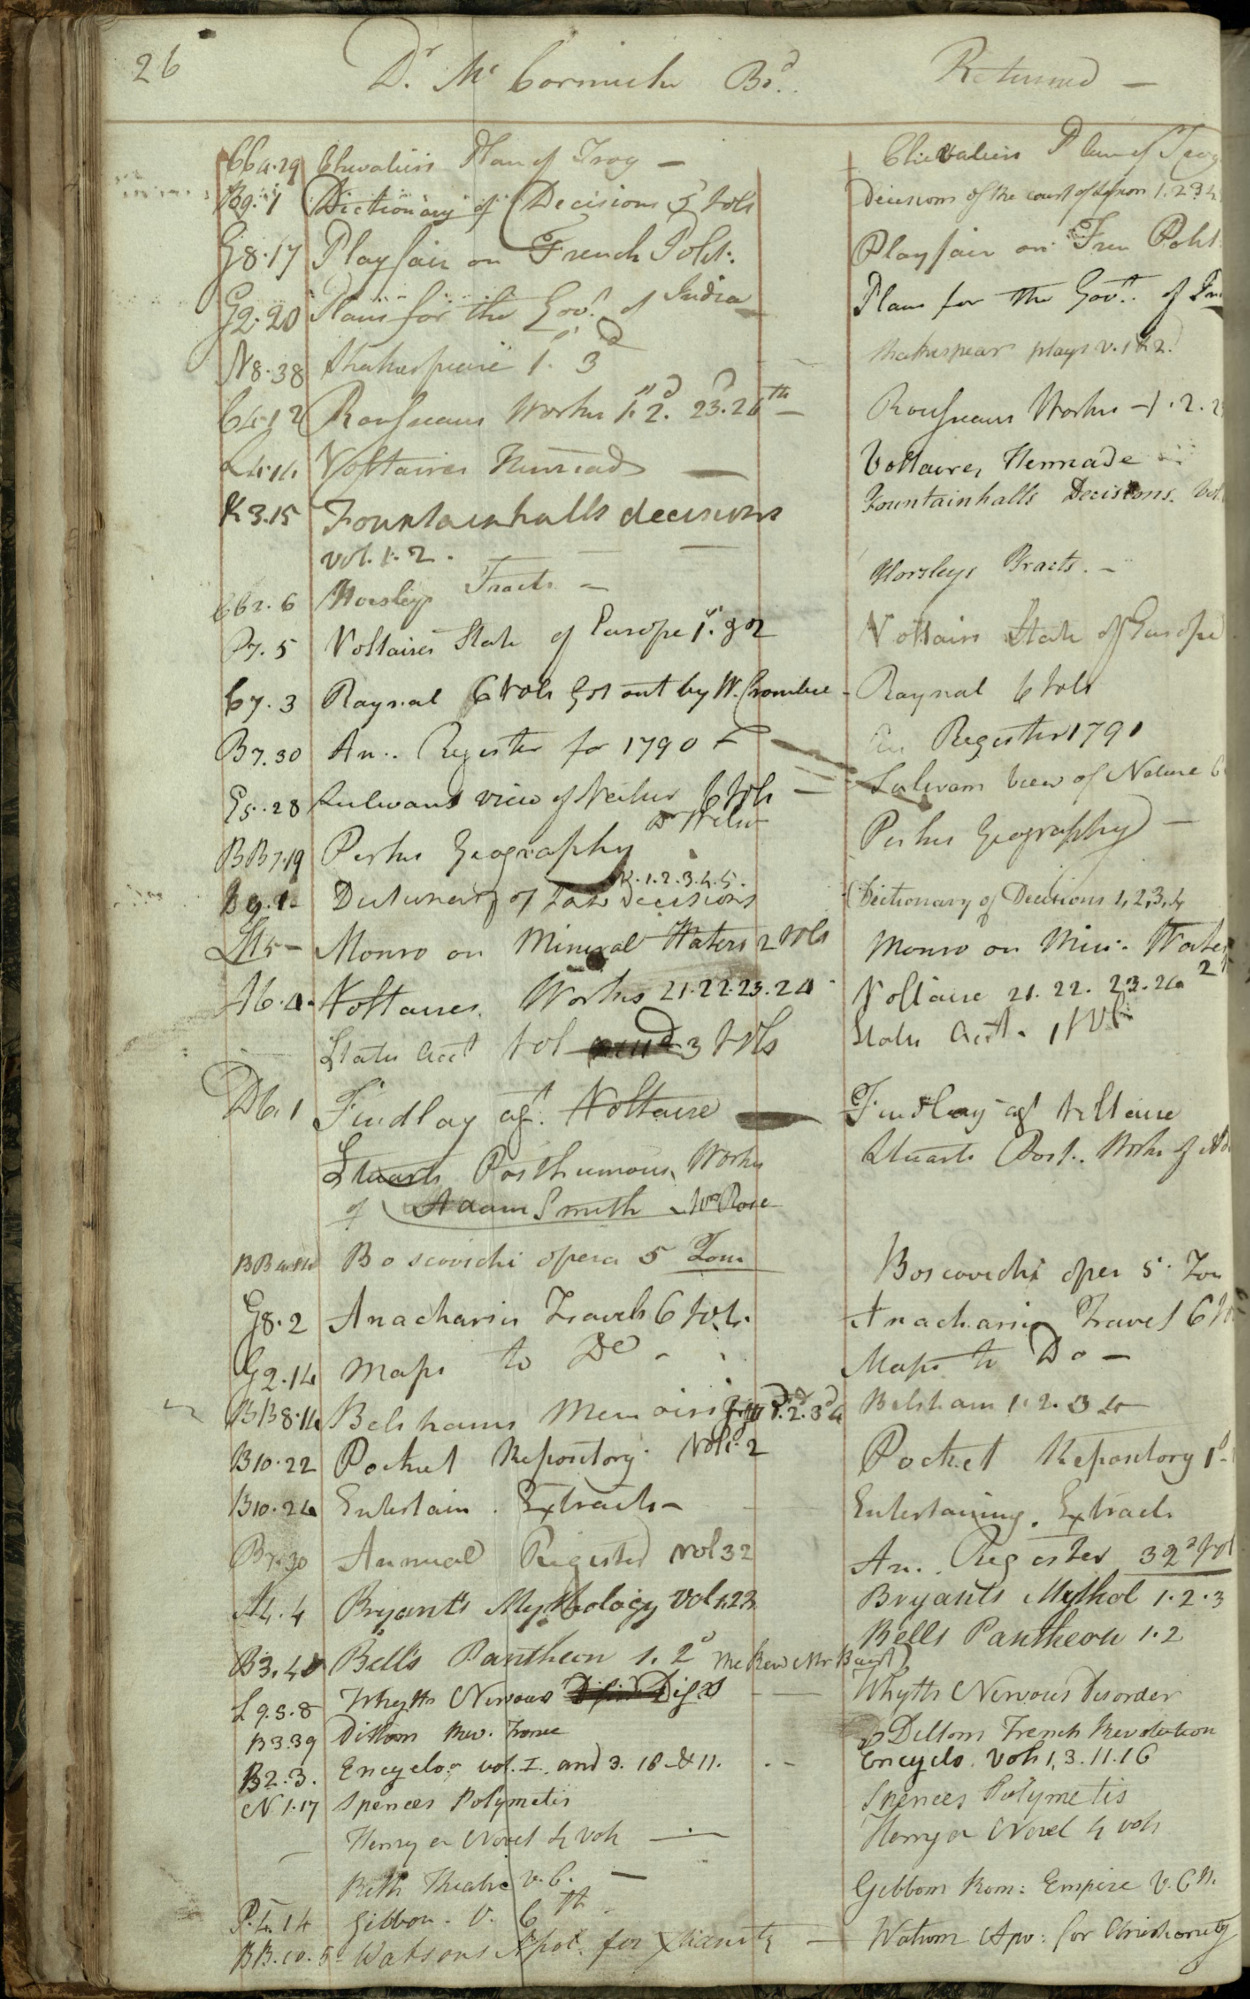 26 Dr. Mc Cormick Bod. Returned —
CC4.29 Chevaliers Plan of Troy — Chevaliers Plan of Troy
B9.1 Dictionary of Decisions 5 vols Decisions of the court of Session 1.2.3.4
G8.17 Playfair on French Polit: Playfair on Fren Polit
G2.20 Plans for the Govt. of India Plans for the Govt. of In
N8.38 Shakespeare 1. 3d Shakespear plays v. 1 & 2.
C4.12 Rousseaus Works 1st 2d. 23. 24th — Rousseaus Works — 1. 2. 2
L4.14 Voltaires Henriade — Voltaires Henriade
K3.15 Fountainhalls decisions Fountainhalls Decisions. vol
vol. 1. 2. —
CC2.6 Horsleys Tracts — Horsleys Tracts. —
P7.5 Voltaires State of Europe 1st. & 2 Voltairs State of Europe
C7.3 Raynal 6 vols Got out by W. Crombie - Raynal 6 vols
B7.30 An.. Register for 1790 An Register 1791
G5.28 Sulivans view of Natur 6 vols — Sulivans View of Nature 6
Perkes Geography Dr Wilson
BB7.19 Perkes Geography —
B9.1 Dictionary of Law Decisions v. 1.2.3.4.5. Dictionary of Decisions 1,2,3,4
Monro on Mineral Waters 2 vols Monro on Min. Wate 2
A6.4 Voltaires Works 21.22.23.24 Voltaire 21. 22. 23. 24
Statis acct vol 3 vols Statis acct. 1 vol
D6.1 Findlay agt. Voltaire — Findlay agt Voltaire
Stuarts Posthumous Works Stuarts Post.. Works of
of Adam Smith Wm Rose
Boscovichi opera 5 Tom Boscovichi oper 5. Tom
G8.2 Anacharsis Travels 6 vols. Anacharsis Travel 6
G2.14 Maps to Do - Maps to Do —
BB8.14 Belshams Memoirs 1st. 2. 3d 4 Belsham 1. 2. 3 4
B10.22 Pocket Repository. Vol 1. 2 Pocket Repository 1st
B10.24 Entertain. Extracts — Entertaining. Extracts
B7.30 Annual Register vol 32 An.. Register 32d vol
A4.4 Bryants Mythology vol 1.2.3 Bryants Mythol 1. 2. 3
B3.40 Bells Pantheon 1. 2d The Revd Mr Baird Bells Pantheon 1.2
L9.5.8 Whytts Nervous Diss — Whytts Nervous Disorder
B3.39 Dillons Rev. France Dillons French Revolution
B2.3. Encyclo. vol. I. and 3. 16 & 11. Encyclo. Vols 1, 3. 11. 16
N1.17 Spences Polymetis Spences Polymetis
— Henry a Novel 4 vols — Henry a Novel 4 vols
Brith Theatre v. 6. —
P.4.14 Gibbon. v. 6th Gibbons Rom: Empire V. 6th.
BB.10.5 Watsons Apol. for Xtianity — Watsons Apo: for Christianity